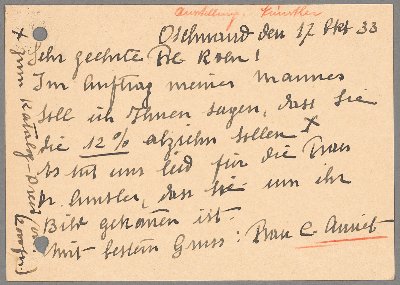 Ausstellung Künstler
Oschwand den 17 Okt 33
Sehr geehrte
Im Auftrag meines Mannes
soll ich Ihnen sagen, dass Sie
die 12% abziehn sollen x
Es tut uns leid für die Frau
Dr. dass sie um ihr
Bild gekommen ist.
Mit bestem Gruss: Frau C. Amiet
x zum Katalog-Preis